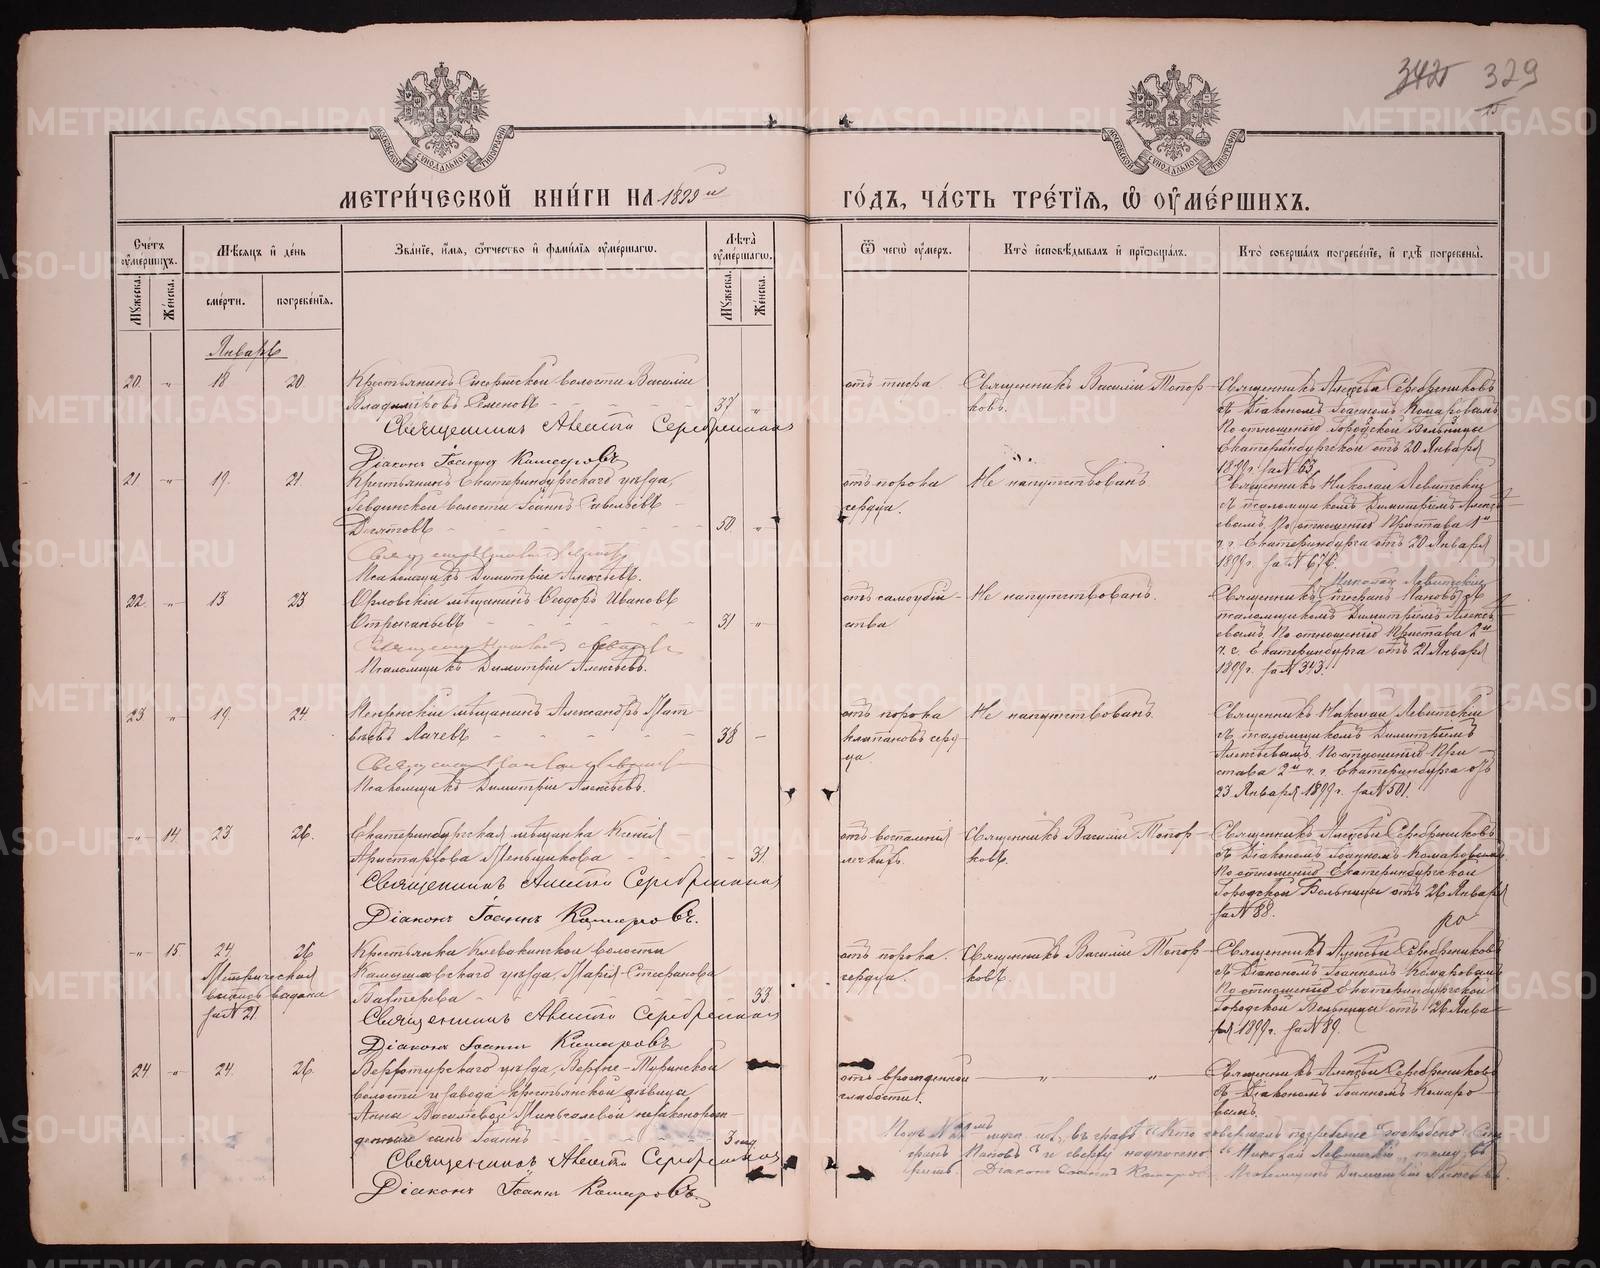 342 329
15
МОСКОВСКОЙ СѴНОДАЛЬНОЙ ТИПОГРАФІИ
МОСКОВСКОЙ СѴНОДАЛЬНОЙ ТИПОГРАФІИ
МЕТРИ́ЧЕСКОЙ КНИ́ГИ НА 1899 й ГО́ДЪ, ЧА́СТЬ ТРЕ́ТІѦ, Ѿ ОУМЕ́РШИХЪ.
Сче́тъ оуме́ршихъ.
Мꙋ́жеска.
Же́нска.
Мѣ́сяцъ и҆ де́нь
сме́рти.
погребе́нїя.
Зва́нїе, и҆́мя, ѻ҆́тчество и҆ фами́лїя оуме́ршагѡ.
Лѣта̀ оуме́ршагѡ.
Мꙋ́жеска.
Же́нска.
Ѿ чегѡ̀ оу҆́меръ.
Кто̀ и҆сповѣ́дывалъ и҆ прїѡбща́лъ.
Кто̀ соверша́лъ погребе́нїе, и҆ гдѣ̀ погребены̀.
Январь
20. " 18 20.
Крестьянинъ волости Василій
Владиміровъ Семеновъ 37 "
Священникъ Алексій Серебренниковъ
Діаконъ Іоаннъ Комаровъ
отъ тифа
Священникъ Василій Топорковъ.
Священникъ Алексѣй Серебрениковъ
съ Діакономъ Іоанномъ Комаровымъ
По отношенію Городской Больницы
Екатеринбургской отъ 20 Января
1899 г. за № 63.
21 " 19. 21
Крестьянинъ Екатеринбургскаго уѣзда,
Ревдинской волости Іоаннъ Савельевъ
50. "
Псаломщикъ Димитрій Алексѣевъ.
отъ порока
сердца.
Не напутствованъ
Священникъ Николай Левитскій
съ псаломщикомъ Димитріемъ Алексѣевымъ. По отношенію Пристава 1й
ч. г. Екатеринбурга отъ 20 Января
1899 г. за № 676.
22. " 13 23
Орловскій мѣщанинъ Ѳеодоръ Ивановъ
31 "
Псаломщикъ Димитрій Алексѣевъ.
отъ самоубійства
Не напутствованъ.
Николай Левитскій
Священникъ Стефанъ Поповъ съ
псаломщикомъ Димитріемъ Алексѣевымъ. По отношенію Пристава 2й
ч. г. Екатеринбурга отъ 21 Января
1899 г. за № 343.
23 " 19. 24.
мѣщанинъ Александръ Матвѣевъ 38 -
Псаломщикъ Димитрій Алексѣевъ.
отъ порока
клапановъ сердца.
Не напутствованъ
Священникъ Николай Левитскій
съ псаломщикомъ Димитріемъ
Алексѣевымъ. По отношенію Пристава 2й ч. г. Екатеринбурга отъ
23 Января 1899 г. за № 501.
" 14 23 26.
Екатеринбургская мѣщанка Ксенія
Аристархова Меньщикова 31.
Священникъ Алексій Серебренниковъ
Діаконъ Іоаннъ Комаровъ.
отъ воспаленія
легкихъ.
Священникъ Василій Топорковъ.
Священникъ Алексѣй Серебрениковъ
съ Діакономъ Іоанномъ Комаровымъ
По отношенію Екатеринбургской
Городской Больницы отъ 26 Января
за № 88.
" 15 24 26
Метрическая
выпись выдана
за № 21.
Крестьянка Клевакинской волости
Камышловскаго уѣзда, Марія Стефанова
33
Священникъ Алексій Серебренниковъ
Діаконъ Іоаннъ Комаровъ
отъ порока
сердца.
Священникъ Василій Топорковъ.
Священникъ Алексѣй Серебрениковъ
съ Діакономъ Іоанномъ Комаровымъ
По отношенію Екатеринбургской
Городской Больницы отъ 26 Января 1899 г. за № 89.
24 " 24. 26.
Верхотурскаго уѣзда, Верхне-Туринской
волости и завода крестьянской дѣвицы
Анны Васильевой незаконорожденный сынъ Іоаннъ 3 нед
Священникъ Алексій Серебренниковъ
Діаконъ Іоаннъ Комаровъ.
отъ врожденной
слабости.
" "
Священникъ Алексѣй Серебрениковъ
съ Діакономъ Іоанномъ Комаровымъ.
въ графѣ "кто совершалъ погребеніе"
Поповъ" и сверху надписано "Николай Левитскій"
Діаконъ Іоаннъ Комаровъ. Псаломщикъ Димитрій Алексѣевъ.
METRIKI.GASO-URAL.RU